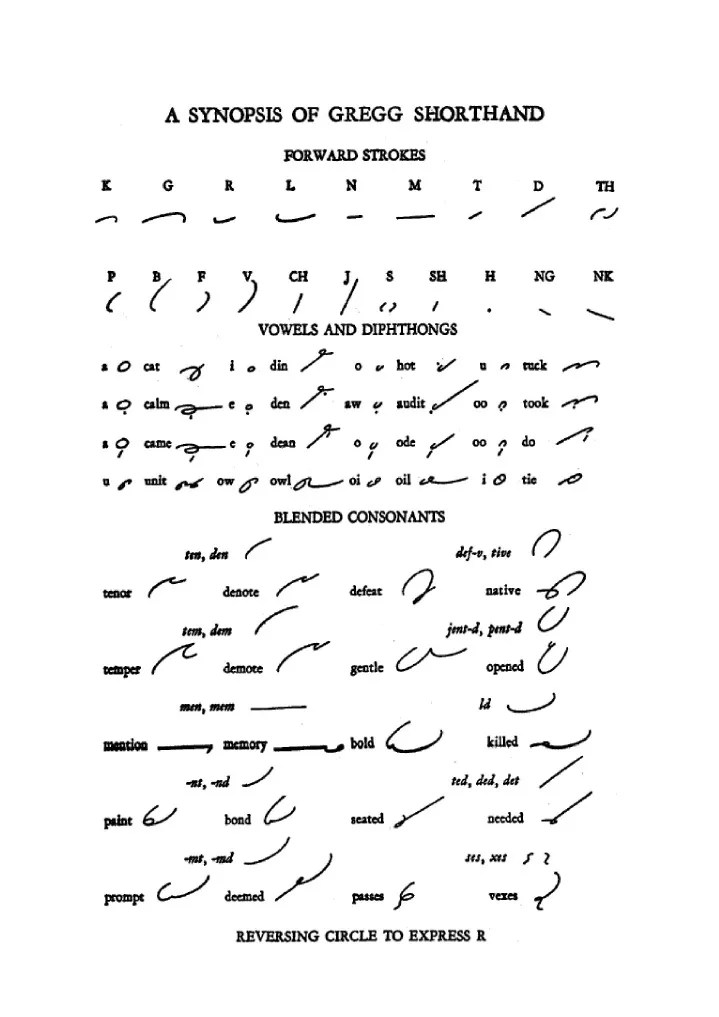 A SYNOPSIS OF GREGG SHORTHAND
FORWARD STROKES
K G R L N M T D TH
P B F V CH J S SH H NG NK
VOWELS AND DIPHTHONGS
a cat i din o hot u tuck
a calm e den aw audit oo took
a came e dean o ode oo do
u unit ow owl oi oil i tie
BLENDED CONSONANTS
ten, den def-v, tive
tenor denote defeat native
tem, dem jent-d, pent-d
temper demote gentle opened
men, mem ld
mention memory bold killed
-nt, -nd ted, ded, det
paint bond seated needed
-mt, -md ses, xes
prompt deemed passes vexes
REVERSING CIRCLE TO EXPRESS R